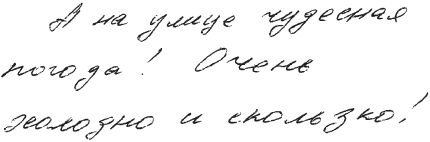 А на улице чудесная
погода! Очень
холодно и скользко!